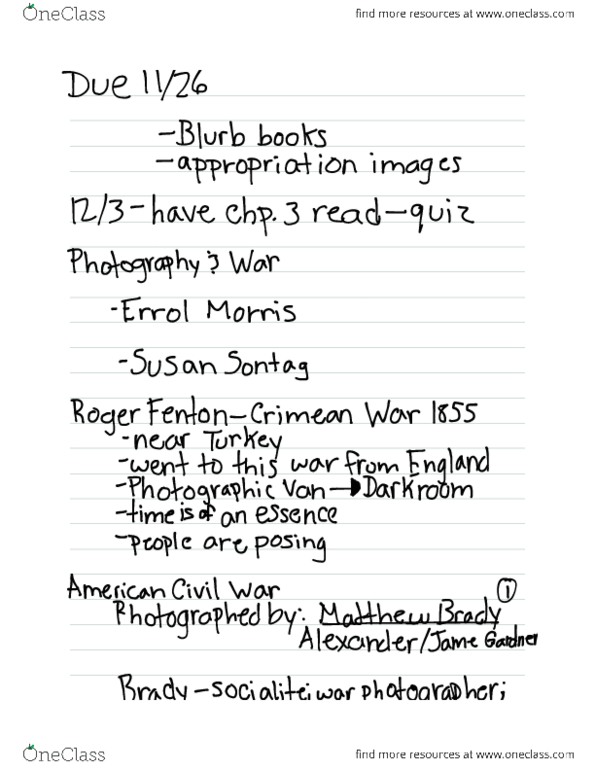 OneClass
find more resources at www.oneclass.com
Due 11/26
-Blurb books
-appropriation images
12/3-have chp. 3 read-quiz
Photography & War
-Errol Morris
-Susan Sontag
Roger Fenton-Crimean War 1855
-near Turkey
-went to this war from England
-Photographic Van→Darkroom
-time is of an essence
-people are posing
American Civil War
①
Photographed by: Matthew Brady
Alexander/Jame Gardner
Brady-socialite; war photographer;
OneClass
find more resources at www.oneclass.com